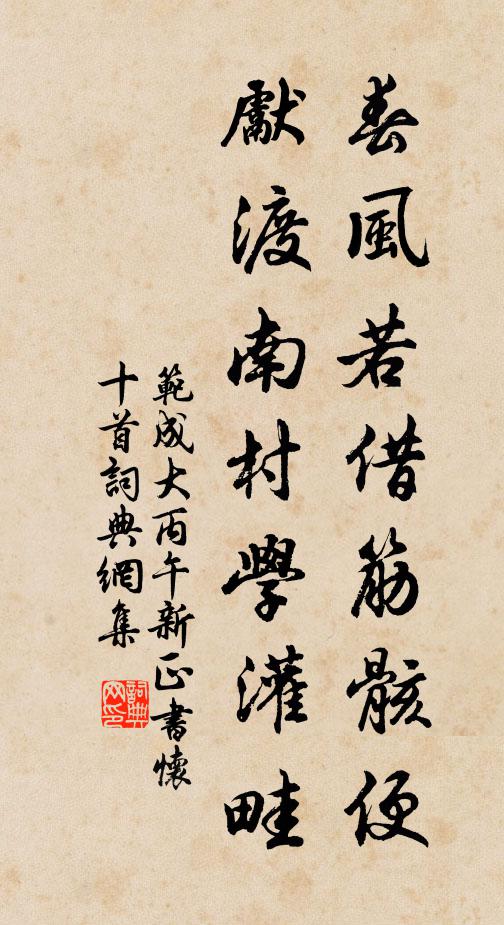 春風若借筋骸便
獻渡南村學灌畦
範成大丙午新正書懷
十首詞典網集
詞典
网印